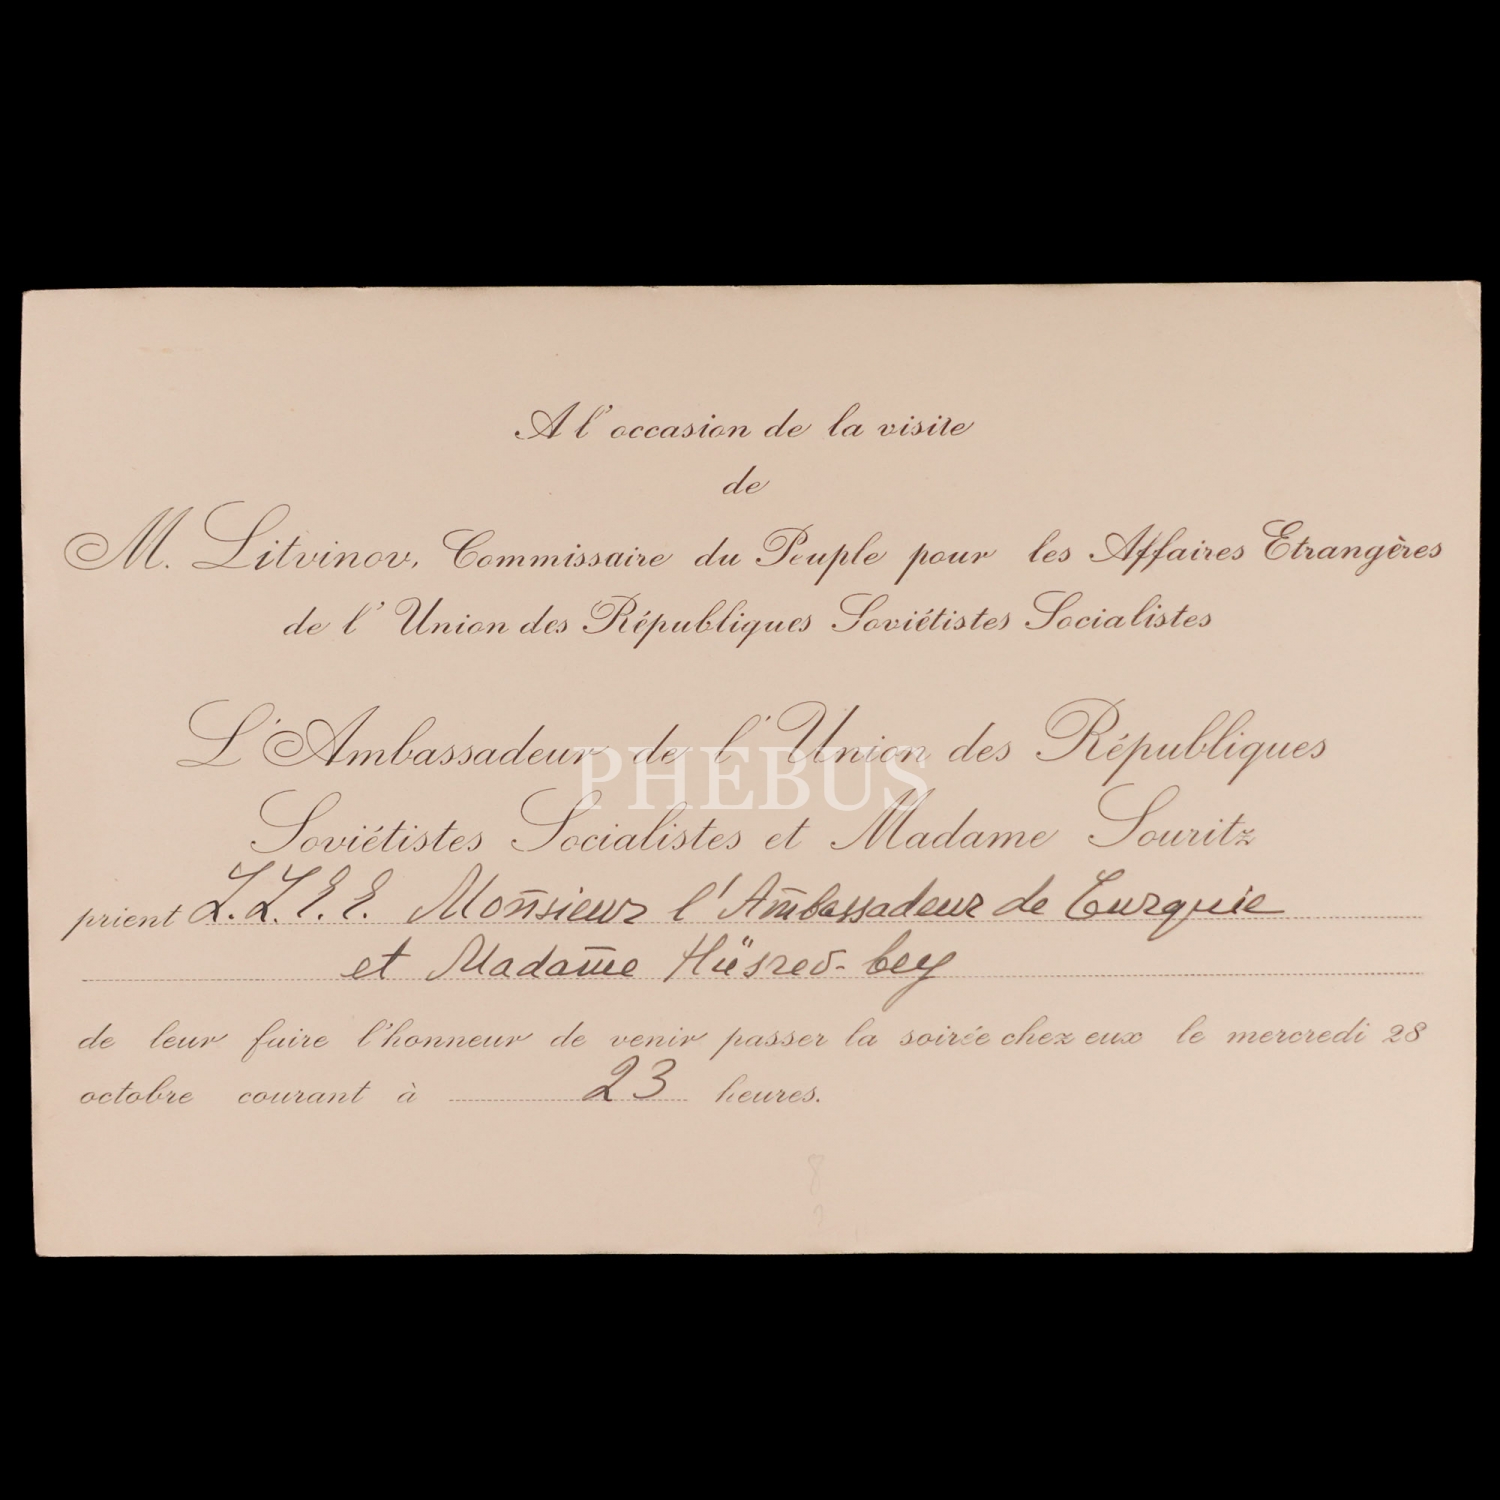 A l'occasion de la visite
de
M. Litvinov, Commissaire du Peuple pour les Affaires Etrangères
de l'Union des Républiques Soviétistes Socialistes
L'Ambassadeur de l'Union des Républiques
PHEBUS
Soviétistes Socialistes et Madame Souritz
prient L.L.E.E. Monsieur l'Ambassadeur de Turquie
et Madame Hüsrev-bey
de leur faire l'honneur de venir passer la soirée chez eux le mercredi 28
octobre courant à 23 heures.